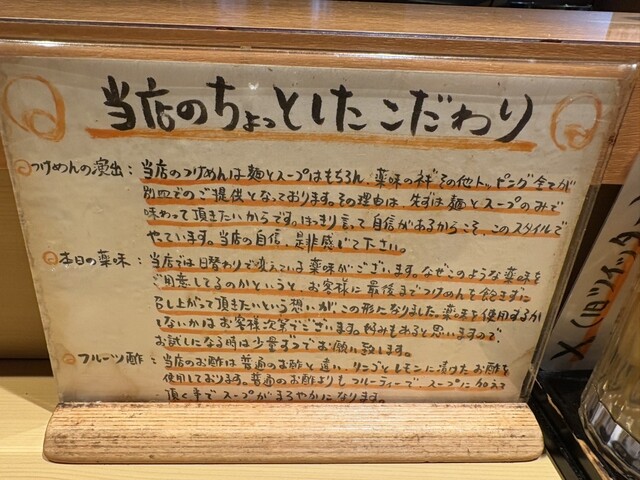 当店のちょっとしたこだわり
つけめんの演出：当店のつけめんは麺とスープはもちろん、薬味のネギその他トッピング全てが
別皿でのご提供となっております。その理由は、先ずは麺とスープのみで
味わって頂きたいからです。はっきり言って自信があるからこそ、このスタイルで
やっています。当店の自信、是非感じて下さい。
本日の薬味：当店では日替わりで変えている薬味がございます。なぜこのような薬味を
ご用意してるのかというと、お客様に最後までつけめんを飽きずに
召し上がって頂きたいという想いがこの形になりました。薬味を使用するか
しないかはお客様次第でございます。好みもあると思いますので
お試しになる時は少量ずつでお願い致します。
フルーツ酢：当店のお酢は普通のお酢と違い、リンゴとレモンに漬けたお酢を
使用しております。普通のお酢よりもフルーティーで、スープに加えて
頂く事でスープがまろやかになります。
X(旧ツイッター